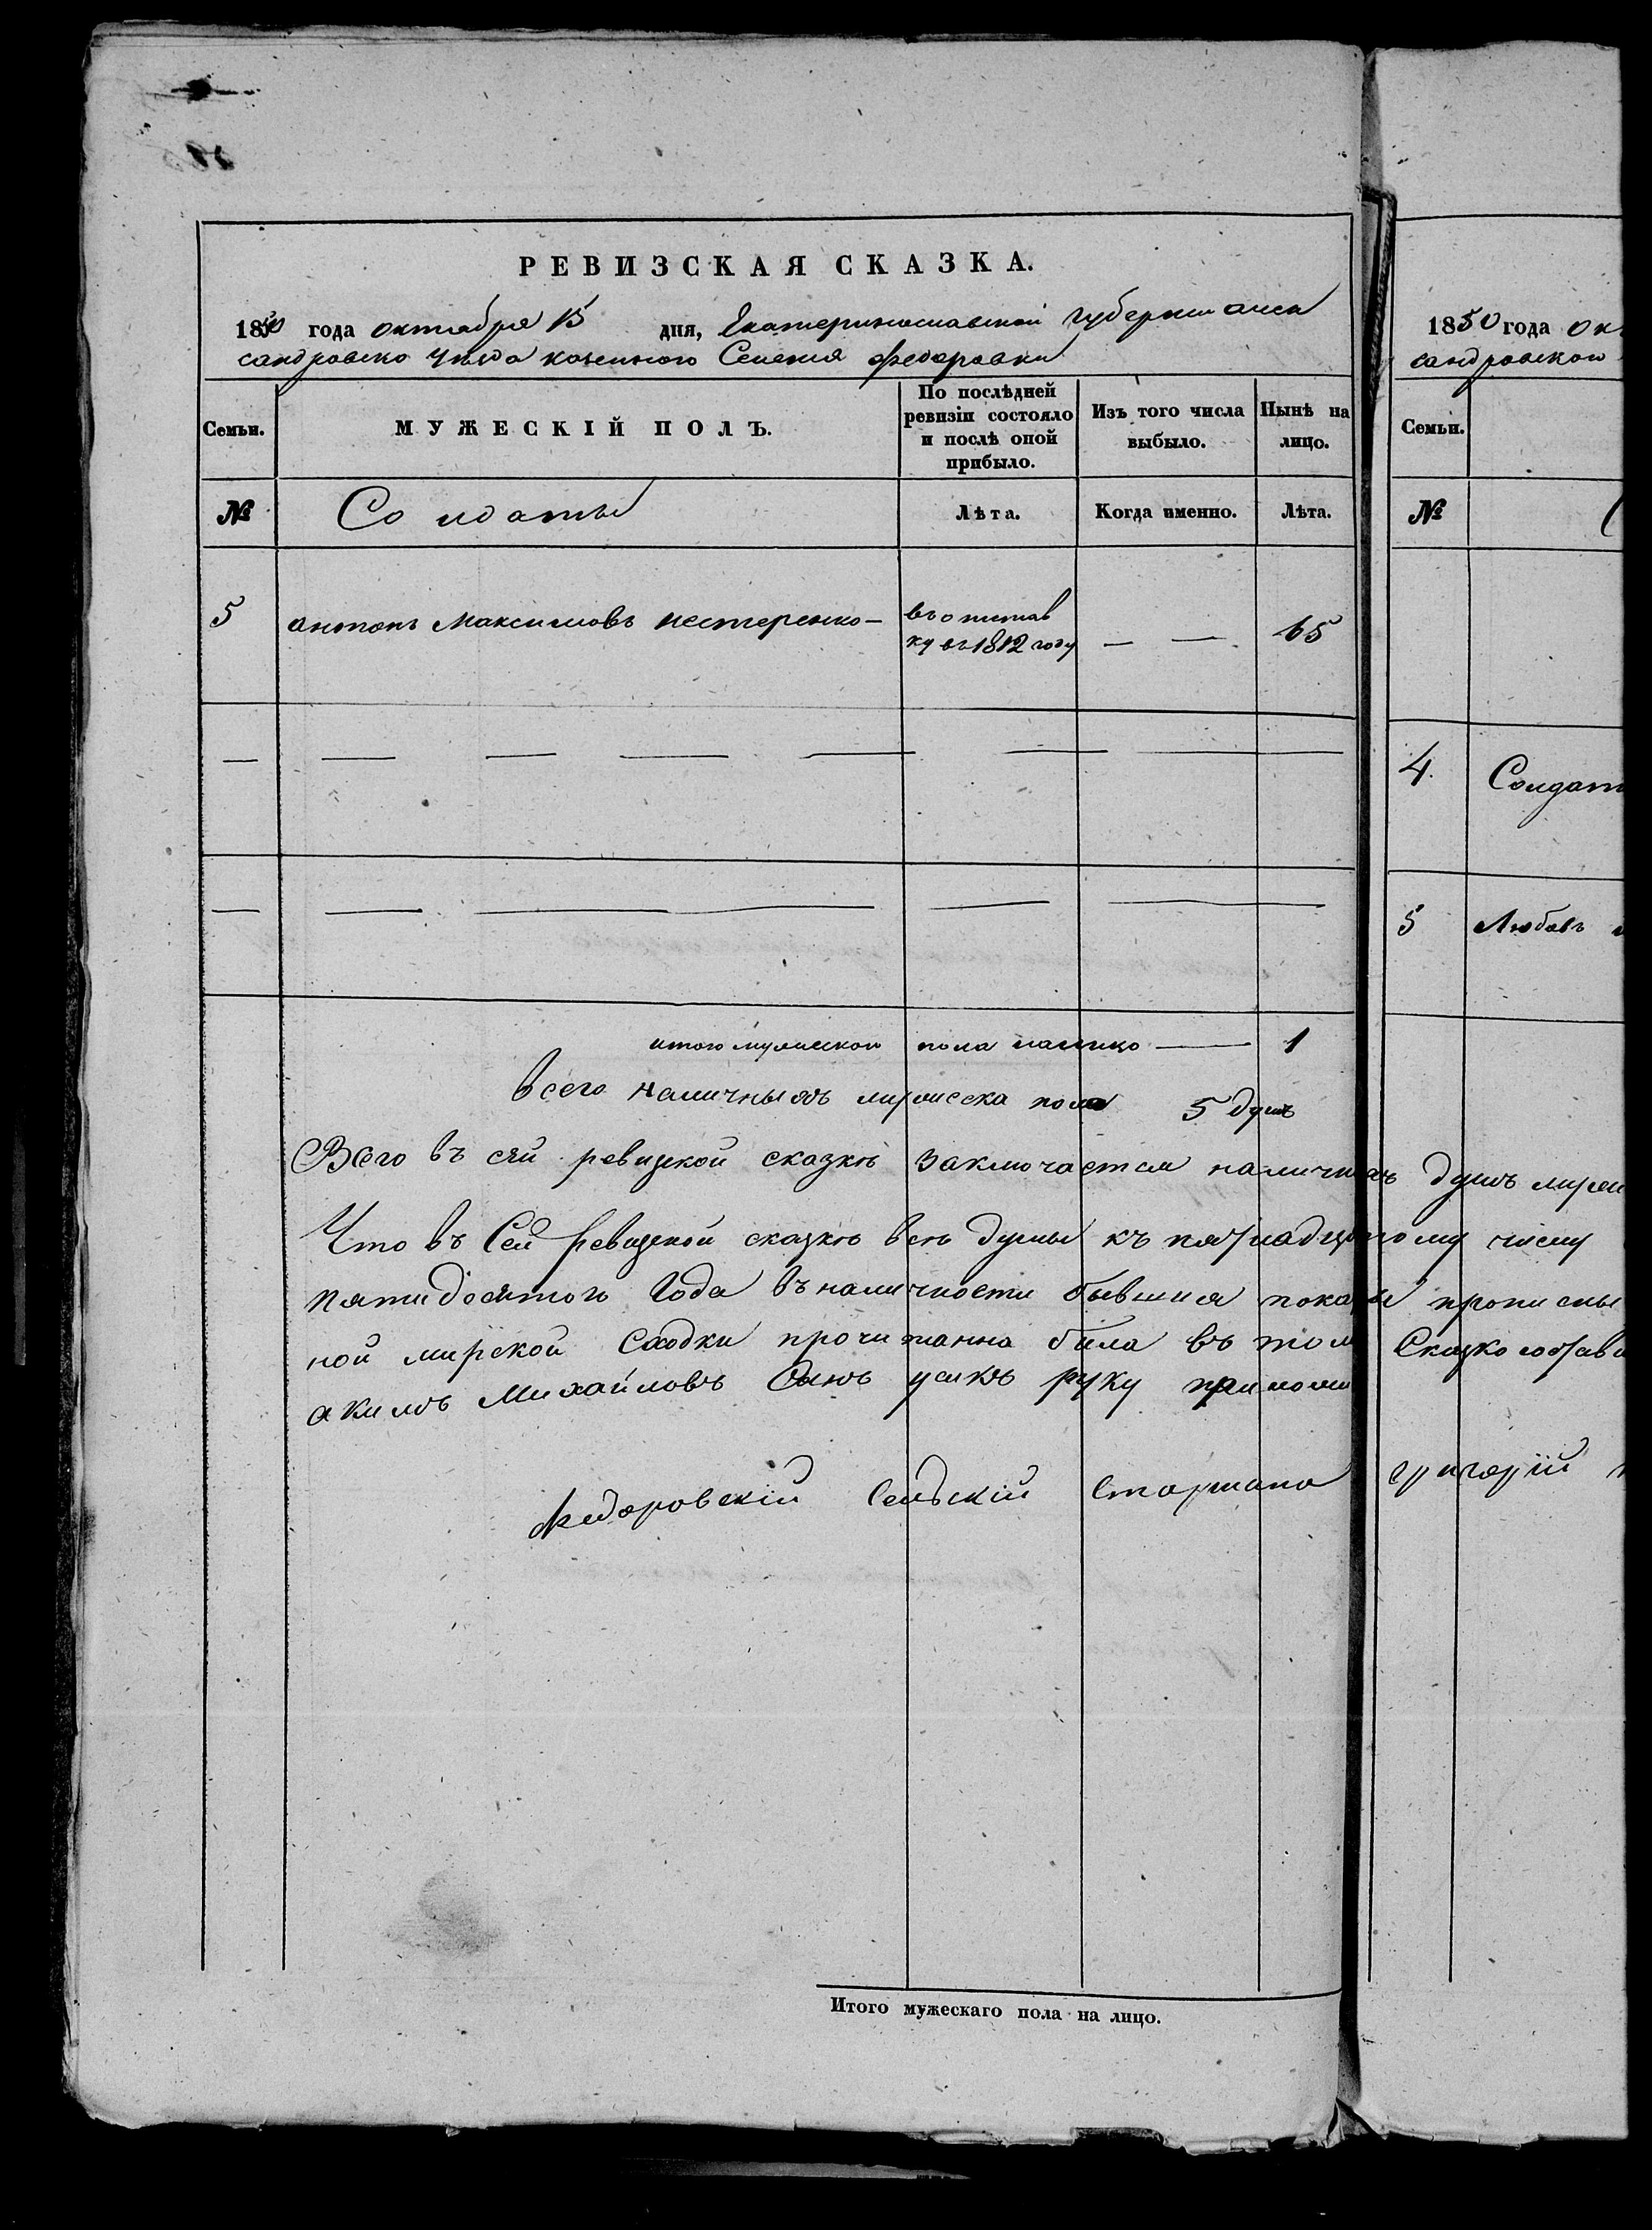 РЕВИЗСКАЯ СКАЗКА.
1850 года октября 15 дня, Екатеринославской губернии алек
сандровско уѣзда казенного Селения федоровки
Семьи.
МУЖЕСКІЙ ПОЛЪ.
По послѣдней ревизіи состояло и послѣ оной прибыло.
Изъ того числа выбыло.
Нынѣ на лицо.
№
Солдаты
Лѣта.
Когда именно.
Лѣта.
5 антонъ Максимовъ нестеренко — въ отстав — — 65
ку въ 1812 году
итого мужескою пола налицо — 1
всего наличныхъ мужеска пола 5 душ
Всего въ сей ревизской сказкѣ заключается наличныхъ душъ мужеск
Что въ Сей ревизской сказкѣ всѣ душы къ пятнадцатому числу
пятидесятого года въ наличности бывшия показаны прописны
ной мирской Сходки прочитанна била въ том Сказко состави
акимъ Михайловъ Сынъ усикъ руку приложи
Федоровскій Сельскій Старшина григорій
Итого мужескаго пола на лицо.
1850 года ок
сандровской
Семьи.
№
4. Солдат
5 Любовь